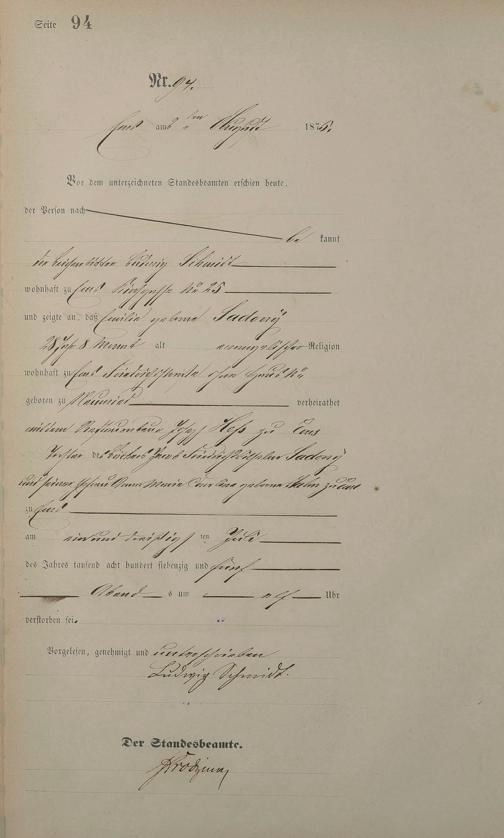 Seite 94
Nr. 94.
Ems am August 187
Vor dem unterzeichneten Standesbeamten erschien heute,
der Person nach
be kannt
der Ludwig Schmidt
wohnhaft zu Ems No 25
und zeigte an, daß Emilie geborne Sadony
28 Jahr 8 Monat alt evangelischer Religion
wohnhaft zu Ems ohne Haus No
geboren zu verheirathet
mit dem Restaurateur Joseph Heß zu Ems
Tochter des Jacob Friedrich Wilhelm Sadony
und seiner Ehefrau Anna Maria geborne
zu Ems
am ein und dreißigsten Juli
des Jahres tausend acht hundert siebenzig und fünf
Abend s um elf Uhr
verstorben sei.
Vorgelesen, genehmigt und unterschrieben
Ludwig Schmidt.
Der Standesbeamte.